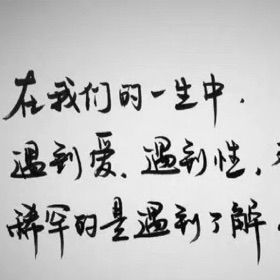 在我们的一生中.
遇到爱、遇到性,
稀罕的是遇到了解,